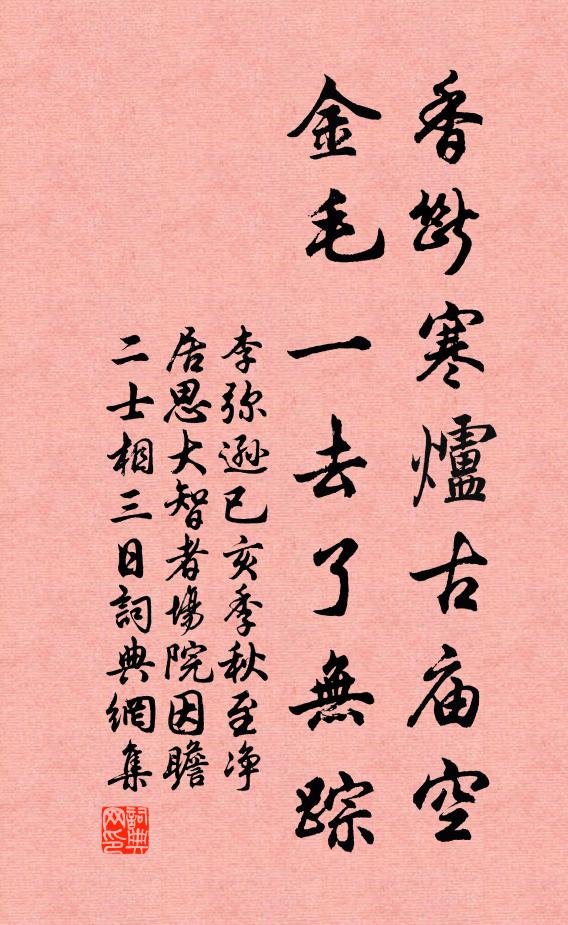 香斷寒爐古庙空
金毛一去了無踪
李弥遜已亥季秋至净
居思大智者塲院因瞻
二士相三日詞典網集
詞典
网印